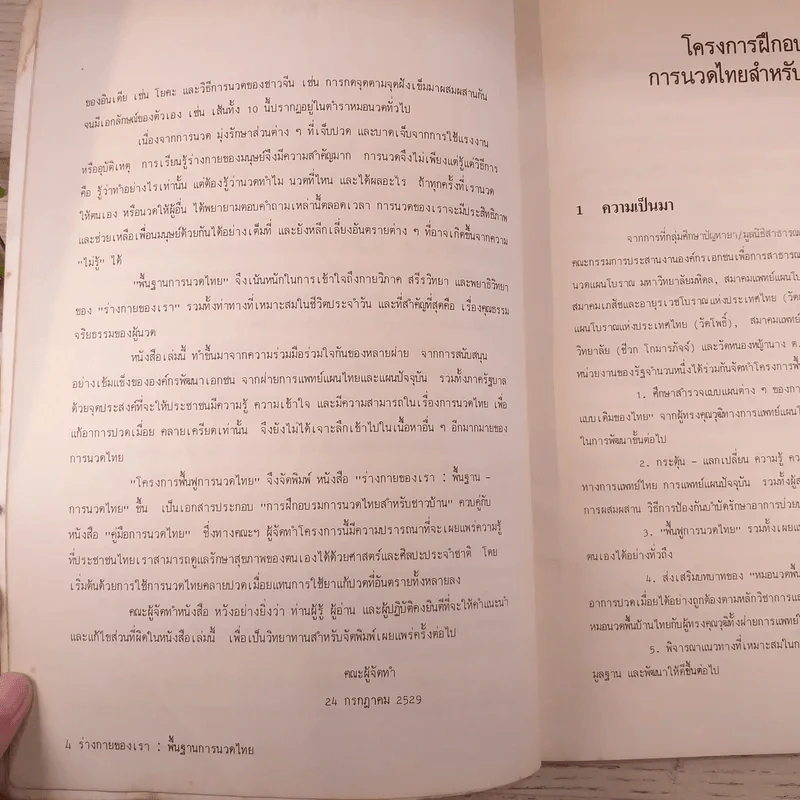 ของอินเดีย เช่น โยคะ และวิธีการนวดของชาวจีน เช่น การกดจุดตามจุดฝังเข็มมาผสมผสานกัน
จนมีเอกลักษณ์ของตัวเอง เช่น เส้นทั้ง 10 นี้ปรากฏอยู่ในตำราหมอนวดทั่วไป
เนื่องจากการนวด มุ่งรักษาส่วนต่าง ๆ ที่เจ็บปวด และบาดเจ็บจากการใช้แรงงาน
หรืออุบัติเหตุ การเรียนรู้ร่างกายของมนุษย์จึงมีความสำคัญมาก การนวดจึงไม่เพียงแต่รู้แต่วิธีการ
คือ รู้ว่าทำอย่างไรเท่านั้น แต่ต้องรู้ว่านวดทำไม นวดที่ไหน และได้ผลอะไร ถ้าทุกครั้งที่เรานวด
ให้ตนเอง หรือนวดให้ผู้อื่น ได้พยายามตอบคำถามเหล่านี้ตลอดเวลา การนวดของเราจะมีประสิทธิภาพ
และช่วยเหลือเพื่อนมนุษย์ด้วยกันได้อย่างเต็มที่ และยังหลีกเลี่ยงอันตรายต่าง ๆ ที่อาจเกิดขึ้นจากความ
"ไม่รู้" ได้
"พื้นฐานการนวดไทย" จึงเน้นหนักในการเข้าใจถึงกายวิภาค สรีรวิทยา และพยาธิวิทยา
ของ "ร่างกายของเรา" รวมทั้งท่าทางที่เหมาะสมในชีวิตประจำวัน และที่สำคัญที่สุดคือ เรื่องคุณธรรม
จริยธรรมของผู้นวด
หนังสือเล่มนี้ ทำขึ้นมาจากความร่วมมือร่วมใจกันของหลายฝ่าย จากการสนับสนุน
อย่างเข้มแข็งขององค์กรพัฒนาเอกชน จากฝ่ายการแพทย์แผนไทยและแผนปัจจุบัน รวมทั้งภาครัฐบาล
ด้วยจุดประสงค์ที่จะให้ประชาชนมีความรู้ ความเข้าใจ และมีความสามารถในเรื่องการนวดไทย เพื่อ
แก้อาการปวดเมื่อย คลายเครียดเท่านั้น จึงยังไม่ได้เจาะลึกเข้าไปในเนื้อหาอื่น ๆ อีกมากมายของ
การนวดไทย
"โครงการฟื้นฟูการนวดไทย" จึงจัดพิมพ์ หนังสือ "ร่างกายของเรา : พื้นฐาน -
การนวดไทย" ขึ้น เป็นเอกสารประกอบ "การฝึกอบรมการนวดไทยสำหรับชาวบ้าน" ควบคู่กับ
หนังสือ "คู่มือการนวดไทย" ซึ่งทางคณะฯ ผู้จัดทำโครงการนี้มีความปรารถนาที่จะเผยแพร่ความรู้
ที่ประชาชนไทยเราสามารถดูแลรักษาสุขภาพของตนเองได้ด้วยศาสตร์และศิลปะประจำชาติ โดย
เริ่มต้นด้วยการใช้การนวดไทยคลายปวดเมื่อยแทนการใช้ยาแก้ปวดที่อันตรายทั้งหลายลง
คณะผู้จัดทำหนังสือ หวังอย่างยิ่งว่า ท่านผู้รู้ ผู้อ่าน และผู้ปฏิบัติคงยินดีที่จะให้คำแนะนำ
และแก้ไขส่วนที่ผิดในหนังสือเล่มนี้ เพื่อเป็นวิทยาทานสำหรับจัดพิมพ์เผยแพร่ครั้งต่อไป
คณะผู้จัดทำ
24 กรกฎาคม 2529
4 ร่างกายของเรา : พื้นฐานการนวดไทย
โครงการฝึกอบ
การนวดไทยสำหรับ
1 ความเป็นมา
จากการที่กลุ่มศึกษาปัญหายา/มูลนิธิสาธารณ
คณะกรรมการประสานงานองค์กรเอกชนเพื่อการสาธารณ
นวดแผนโบราณ มหาวิทยาลัยมหิดล, สมาคมแพทย์แผนโบ
สมาคมเภสัชและอายุรเวชโบราณแห่งประเทศไทย (วัด
แผนโบราณแห่งประเทศไทย (วัดโพธิ์), สมาคมแพทย์
วิทยาลัย (ชีวก โกมารภัจจ์) และวัดหนองหญ้านาง ต.
หน่วยงานของรัฐจำนวนหนึ่งได้ร่วมกันจัดทำโครงการฟื้น
1. ศึกษาสำรวจแบบแผนต่าง ๆ ของกา
แบบเดิมของไทย" จากผู้ทรงคุณวุฒิทางการแพทย์แผนโ
ในการพัฒนาขั้นต่อไป
2. กระตุ้น - แลกเปลี่ยน ความรู้ คว
ทางการแพทย์ไทย การแพทย์แผนปัจจุบัน รวมทั้งผู้ส
การผสมผสาน วิธีการป้องกันบำบัดรักษาอาการป่วย
3. "ฟื้นฟูการนวดไทย" รวมทั้งเผยแ
ตนเองได้อย่างทั่วถึง
4. ส่งเสริมบทบาทของ "หมอนวดพื้น
อาการปวดเมื่อยได้อย่างถูกต้องตามหลักวิชาการแ
หมอนวดพื้นบ้านไทยกับผู้ทรงคุณวุฒิทั้งฝ่ายการแพทย์
5. พิจารณาแนวทางที่เหมาะสมในก
มูลฐาน และพัฒนาให้ดีขึ้นต่อไป